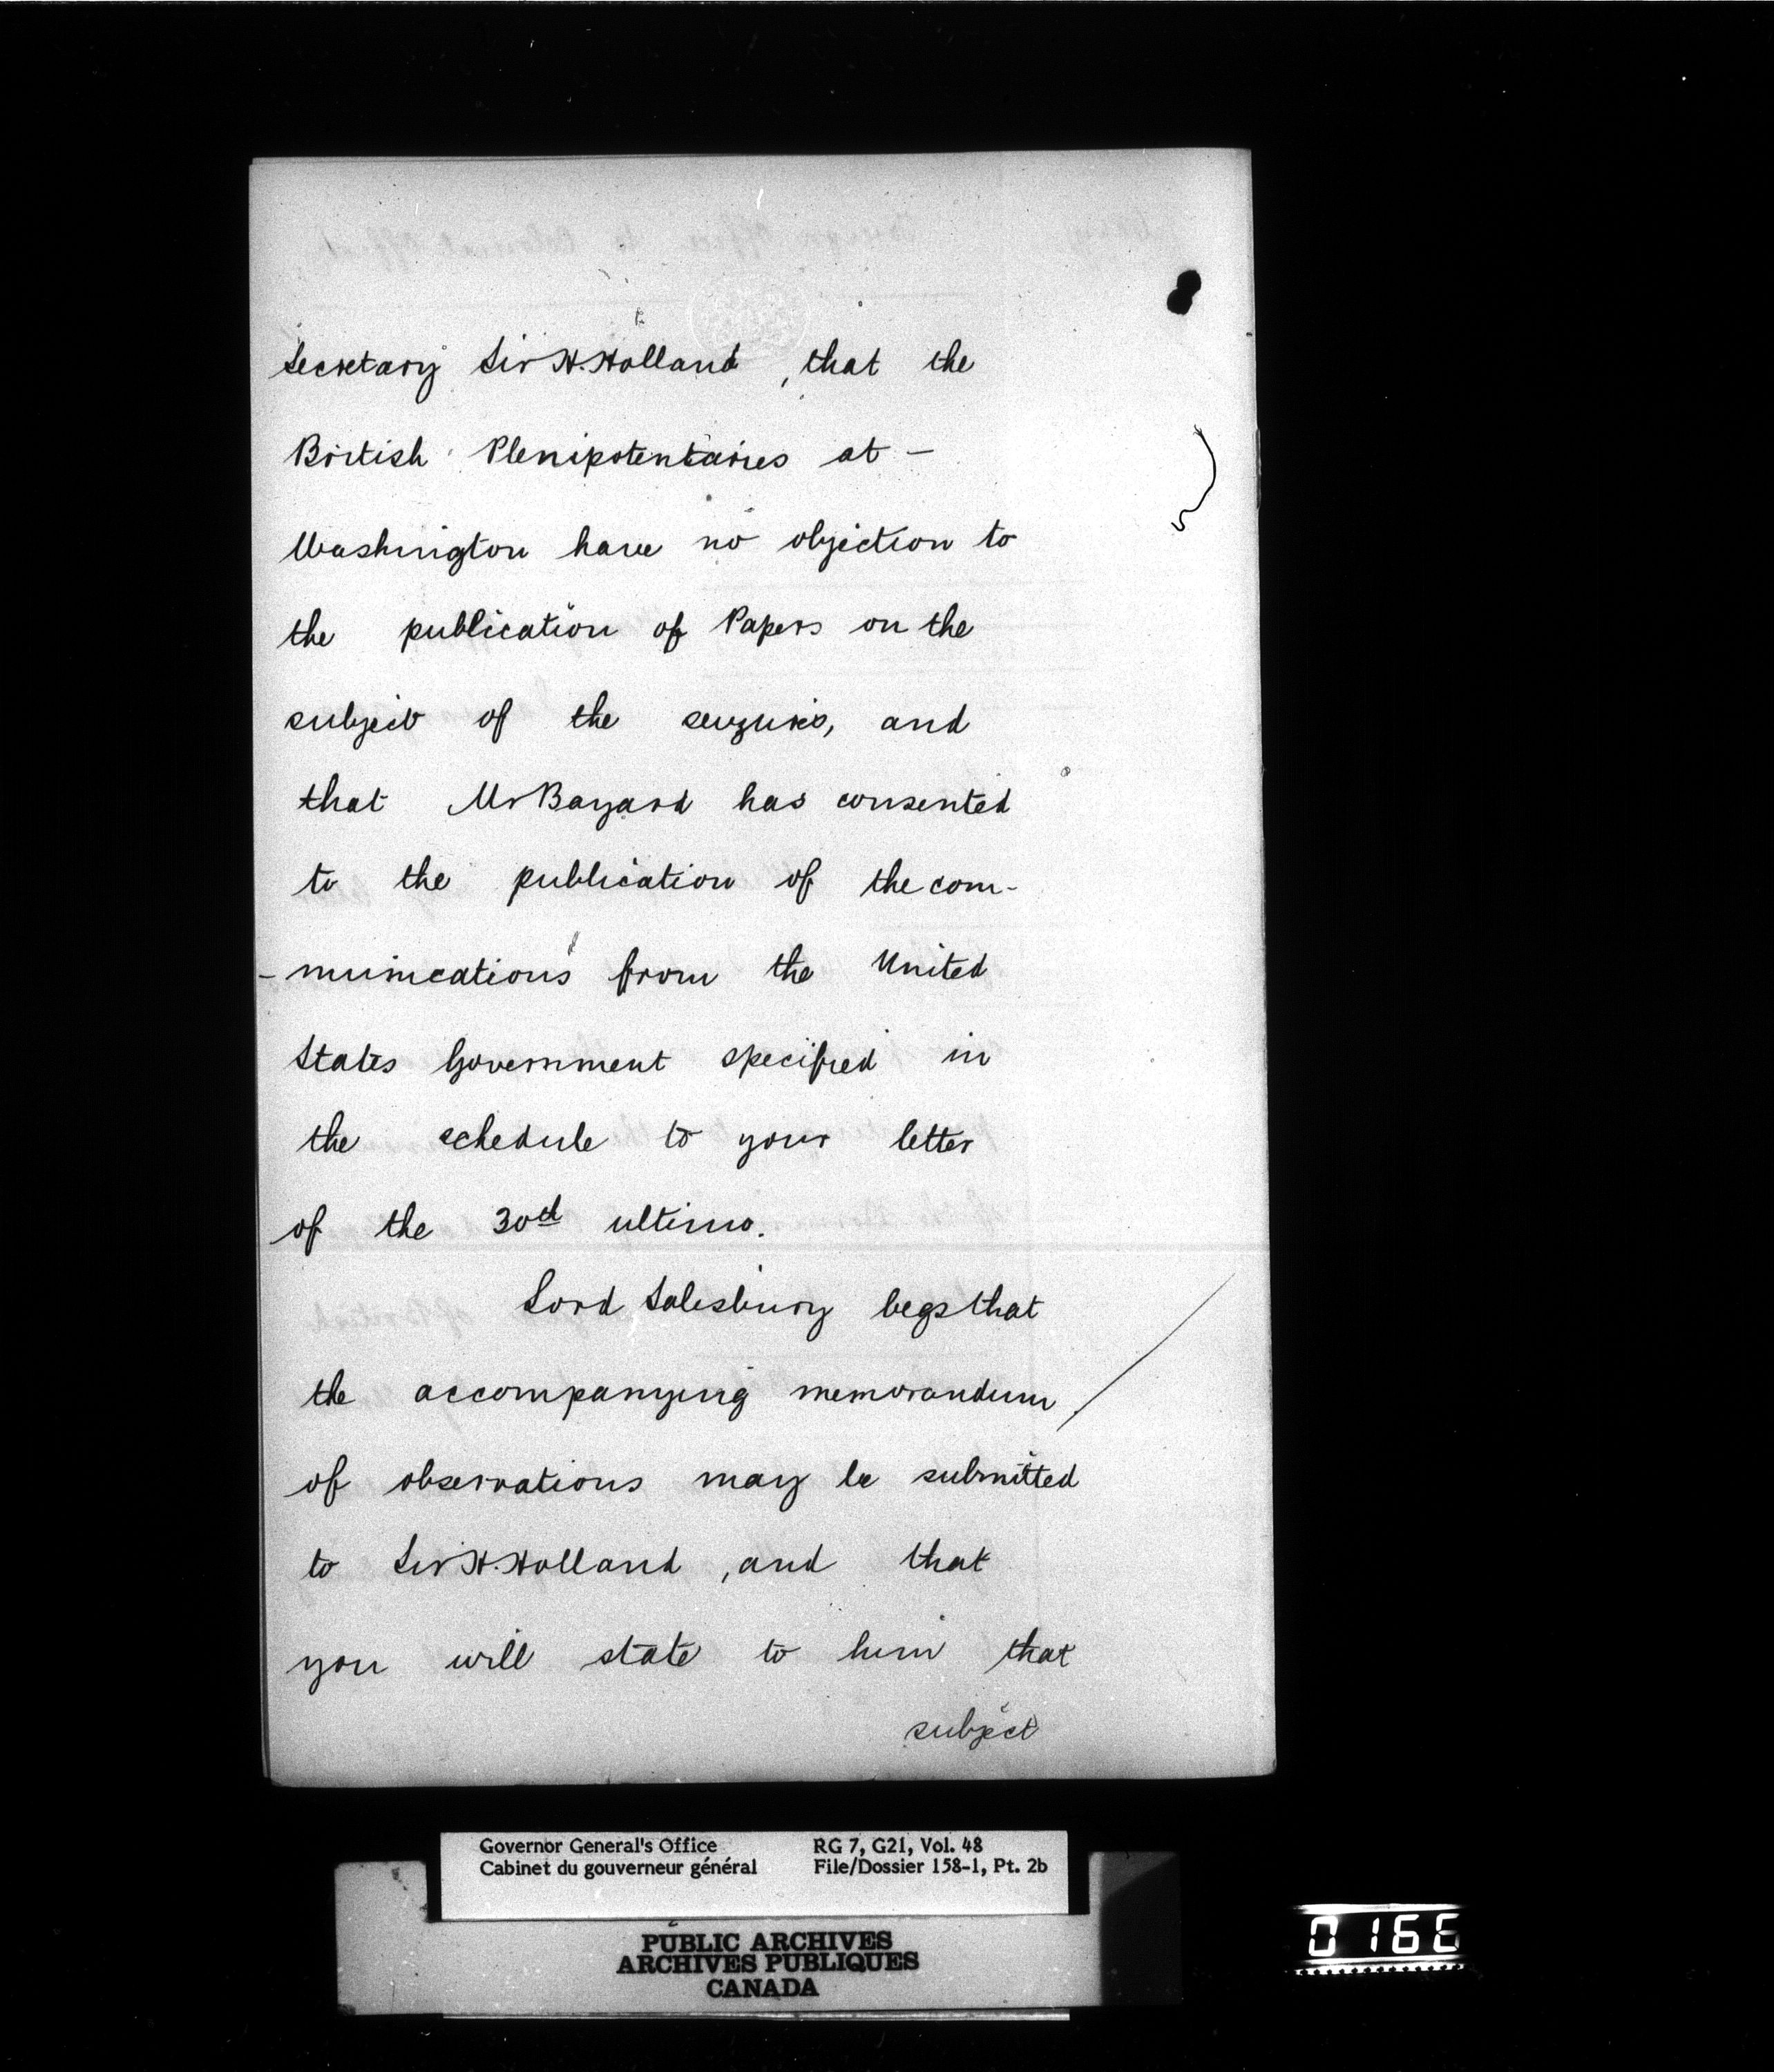 Secretary Sir H. Holland, that the
British Plenipotentaries at –
Washington have no objection to
the publication of Papers on the
subject of the seizures, and
that Mr Bayard has consented
to the publication of the com-
-munications from the United
States Government specified in
the schedule to your letter
of the 30th ultimo.
Lord Salisbury begs that
the accompanying memorandum
of observations may be submitted
to Sir H. Holland, and that
you will state to him that
subject
Governor General's Office
Cabinet du gouverneur général
RG 7, G21, Vol. 48
File/Dossier 158-1, Pt. 2b
PUBLIC ARCHIVES
ARCHIVES PUBLIQUES
CANADA